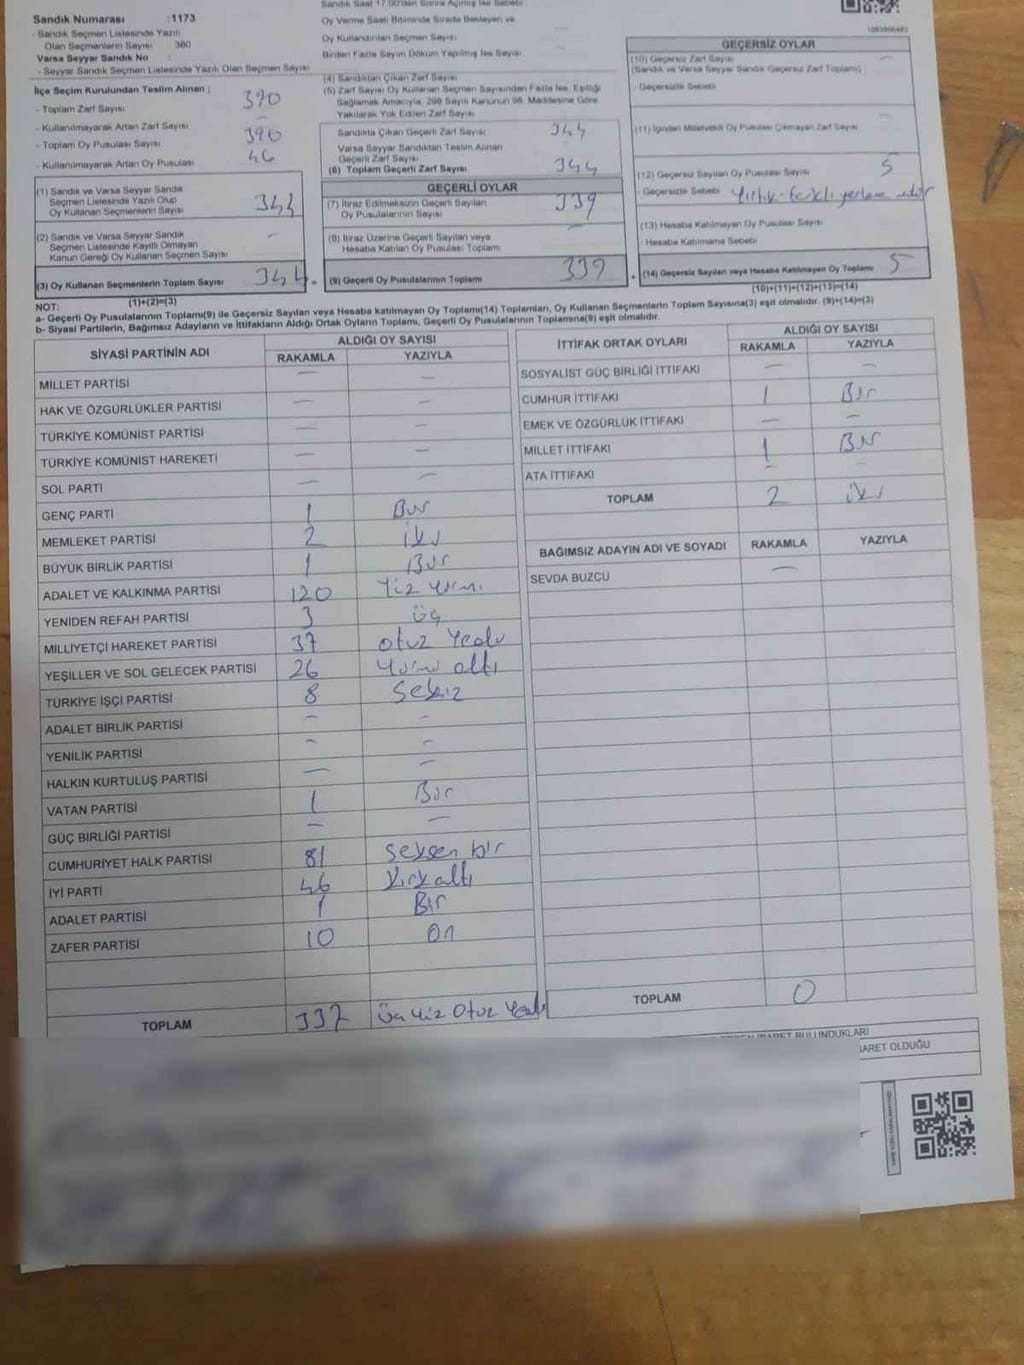 Sandık Numarası :1173
- Sandık Seçmen Listesinde Yazılı
Olan Seçmenlerin Sayısı : 380
Varsa Seyyar Sandık No :
- Seyyar Sandık Seçmen Listesinde Yazılı Olan Seçmen Sayısı
İlçe Seçim Kurulundan Teslim Alınan ;
- Toplam Zarf Sayısı 390
- Kullanılmayarak Artan Zarf Sayısı —
- Toplam Oy Pusulası Sayısı 390
- Kullanılmayarak Artan Oy Pusulası 46
(1) Sandık ve Varsa Seyyar Sandık
Seçmen Listesinde Yazılı Olup
Oy Kullanan Seçmenlerin Sayısı 344
(2) Sandık ve Varsa Seyyar Sandık
Seçmen Listesinde Kayıtlı Olmayan
Kanun Gereği Oy Kullanan Seçmen Sayısı —
(3) Oy Kullanan Seçmenlerin Toplam Sayısı 344
(1)+(2)=(3)
Sandık Saat 17.00'den Sonra Açılmış İse Sebebi
Oy Verme Saati Bitiminde Sırada Bekleyen ve
Oy Kullandırılan Seçmen Sayısı
Birden Fazla Sayım Döküm Yapılmış İse Sayısı
(4) Sandıktan Çıkan Zarf Sayısı
(5) Zarf Sayısı Oy Kullanan Seçmen Sayısından Fazla İse, Eşitliği
Sağlamak Amacıyla, 298 Sayılı Kanunun 98. Maddesine Göre
Yakılarak Yok Edilen Zarf Sayısı
Sandıkta Çıkan Geçerli Zarf Sayısı 344
Varsa Seyyar Sandıktan Teslim Alınan
Geçerli Zarf Sayısı
(6) Toplam Geçerli Zarf Sayısı 344
GEÇERLİ OYLAR
(7) İtiraz Edilmeksizin Geçerli Sayılan
Oy Pusulalarının Sayısı 339
(8) İtiraz Üzerine Geçerli Sayılan veya
Hesaba Katılan Oy Pusulası Toplamı —
(9) Geçerli Oy Pusulalarının Toplamı 339
GEÇERSİZ OYLAR
(10) Geçersiz Zarf Sayısı —
(Sandık ve Varsa Seyyar Sandık Geçersiz Zarf Toplamı)
- Geçersizlik Sebebi
(11) İçinden Milletvekili Oy Pusulası Çıkmayan Zarf Sayısı —
(12) Geçersiz Sayılan Oy Pusulası Sayısı 5
- Geçersizlik Sebebi
(13) Hesaba Katılmayan Oy Pusulası Sayısı
- Hesaba Katılmama Sebebi
(14) Geçersiz Sayılan veya Hesaba Katılmayan Oy Toplamı 5
(10)+(11)+(12)+(13)=(14)
NOT:
a- Geçerli Oy Pusulalarının Toplamı(9) ile Geçersiz Sayılan veya Hesaba katılmayan Oy Toplamı(14) Toplamları, Oy Kullanan Seçmenlerin Toplam Sayısına(3) eşit olmalıdır. (9)+(14)=(3)
b- Siyasi Partilerin, Bağımsız Adayların ve İttifakların Aldığı Ortak Oyların Toplamı, Geçerli Oy Pusulalarının Toplamına(9) eşit olmalıdır.
SİYASİ PARTİNİN ADI ALDIĞI OY SAYISI
RAKAMLA YAZIYLA
MİLLET PARTİSİ — —
HAK VE ÖZGÜRLÜKLER PARTİSİ — —
TÜRKİYE KOMÜNİST PARTİSİ — —
TÜRKİYE KOMÜNİST HAREKETİ — —
SOL PARTİ — —
GENÇ PARTİ 1 Bir
MEMLEKET PARTİSİ 2 iki
BÜYÜK BİRLİK PARTİSİ 1 Bir
ADALET VE KALKINMA PARTİSİ 120 Yüz yirmi
YENİDEN REFAH PARTİSİ 3 üç
MİLLİYETÇİ HAREKET PARTİSİ 37 otuz yedi
YEŞİLLER VE SOL GELECEK PARTİSİ 26 Yirmi altı
TÜRKİYE İŞÇİ PARTİSİ 8 Sekiz
ADALET BİRLİK PARTİSİ — —
YENİLİK PARTİSİ — —
HALKIN KURTULUŞ PARTİSİ — —
VATAN PARTİSİ 1 Bir
GÜÇ BİRLİĞİ PARTİSİ — —
CUMHURİYET HALK PARTİSİ 81 Seksen bir
İYİ PARTİ 46 Kırk altı
ADALET PARTİSİ 1 Bir
ZAFER PARTİSİ 10 On
TOPLAM 337 Üç Yüz Otuz Yedi
İTTİFAK ORTAK OYLARI ALDIĞI OY SAYISI
RAKAMLA YAZIYLA
SOSYALİST GÜÇ BİRLİĞİ İTTİFAKI — —
CUMHUR İTTİFAKI 1 Bir
EMEK VE ÖZGÜRLÜK İTTİFAKI — —
MİLLET İTTİFAKI 1 Bir
ATA İTTİFAKI — —
TOPLAM 2 iki
BAĞIMSIZ ADAYIN ADI VE SOYADI RAKAMLA YAZIYLA
SEVDA BUZCU —
TOPLAM 0
BULUNDUKLARI
İBARET OLDUĞU